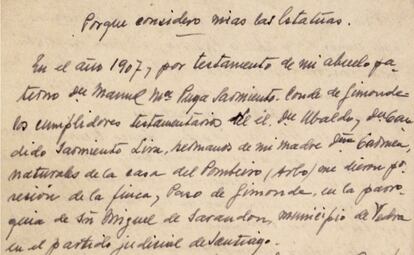 Porque considero mias las Estatuas.
En el año 1907, y por testamento de mi abuelo pa-
terno Dn Manuel Mª Puga Sarmiento. Conde de Gimonde
los cumplidores testamentarios de él. Dn Ubaldo, y Dn Can-
dido Sarmiento Lira, hermanos de mi madre Dña Carmen,
naturales de la casa del Pombeiro (Arbo) me dieron po-
sesión de la finca, y Pazo de Gimonde, en la parro-
quia de Sn Miguel de Sarandon, municipio de Vedra
en el partido judicial de Santiago.